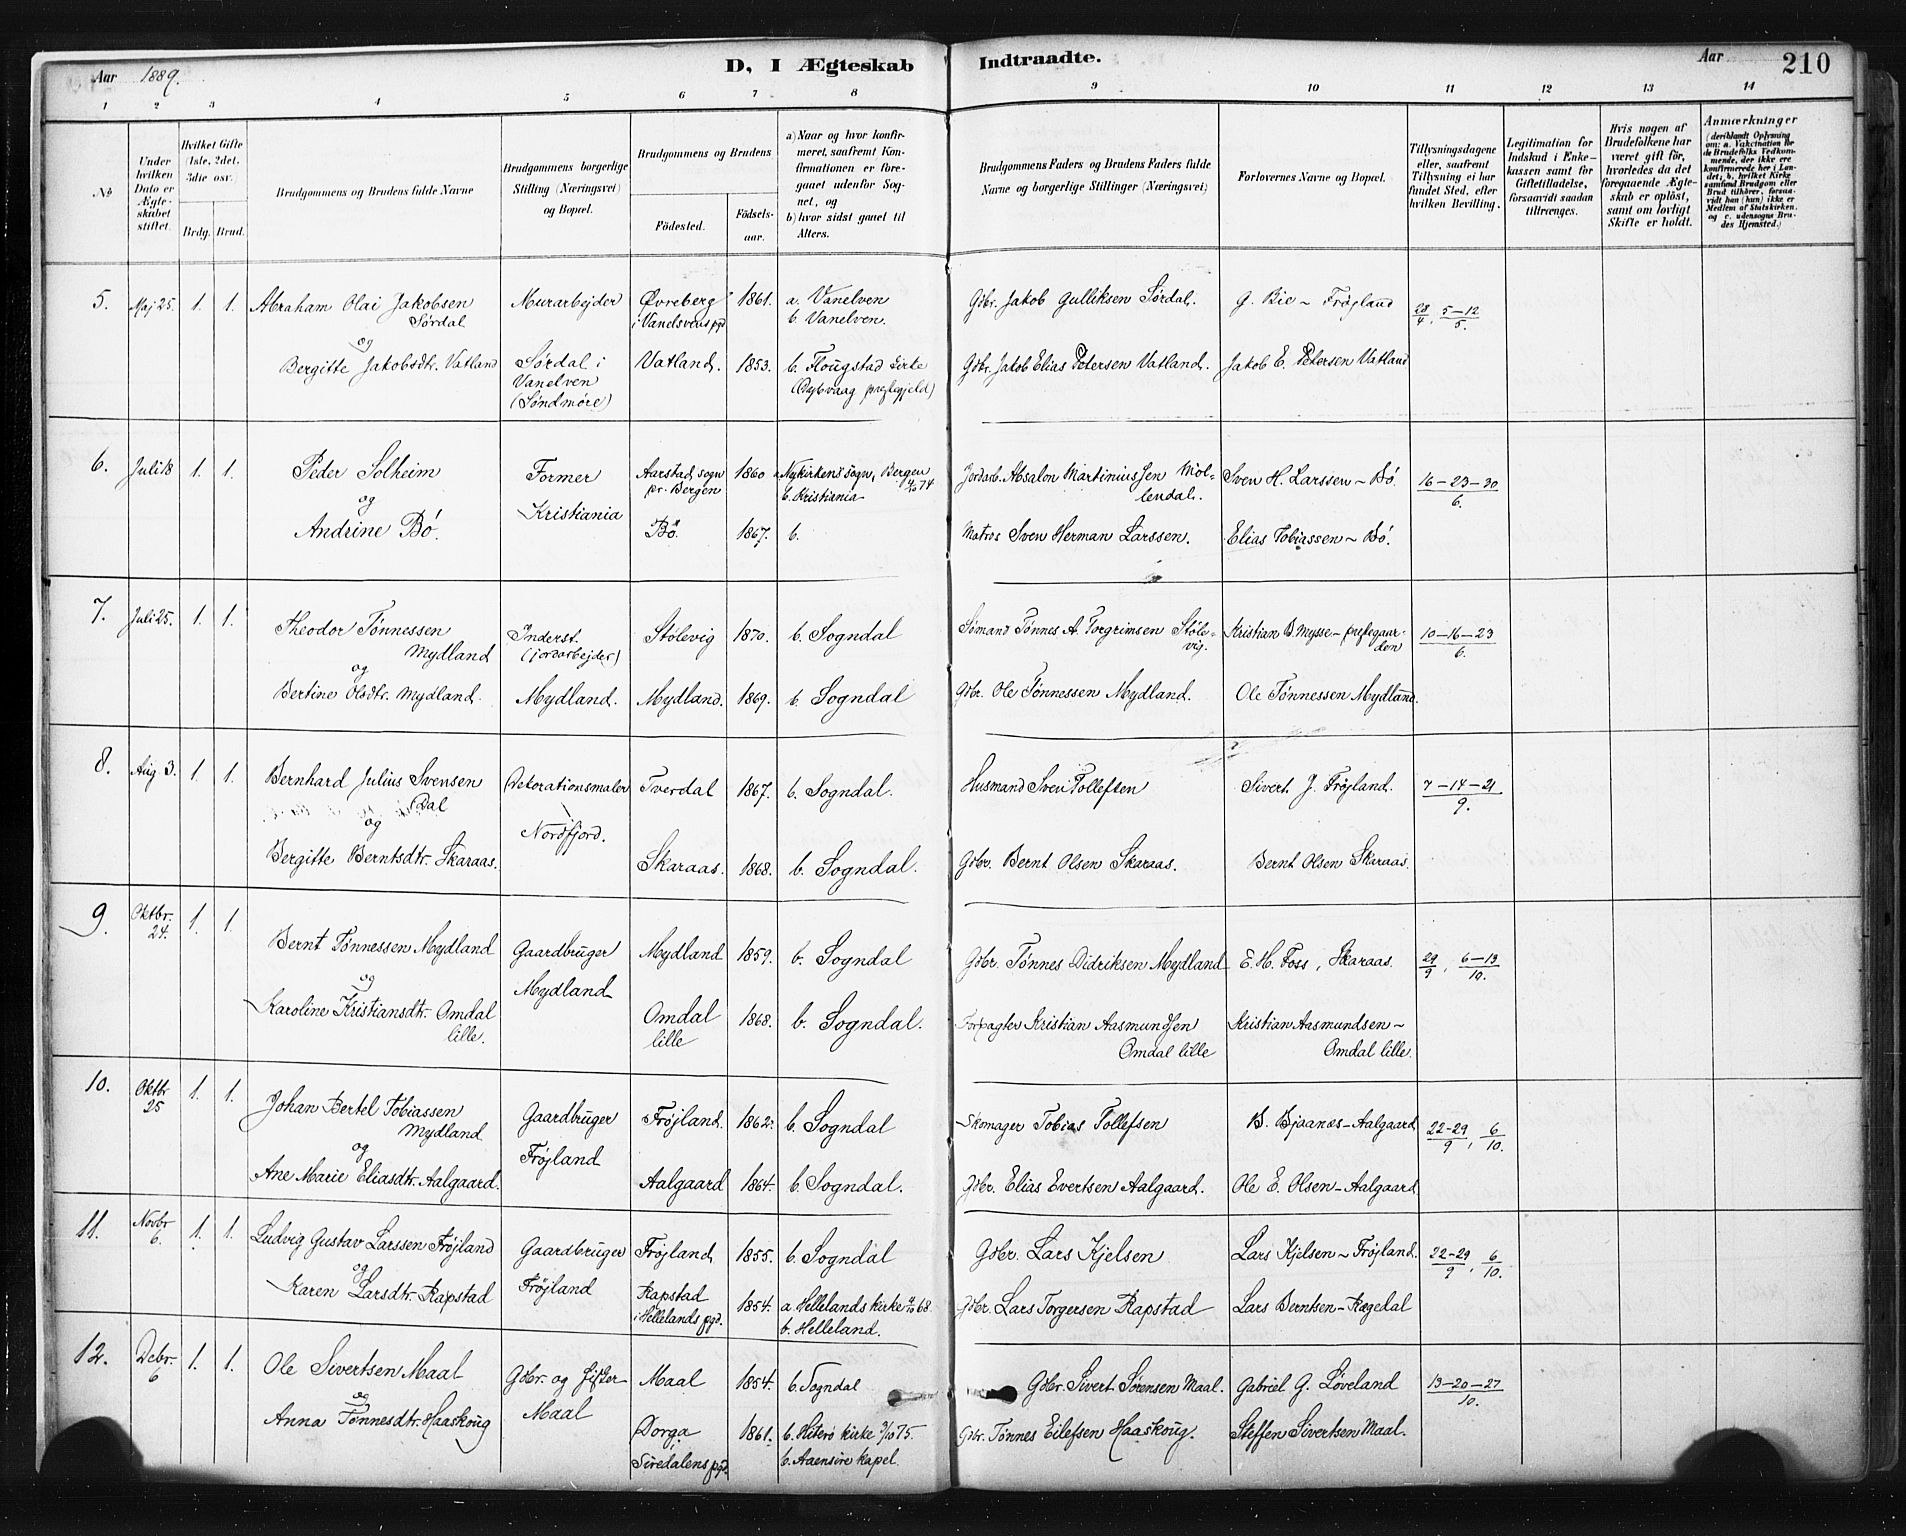 Aar 1889.
D, I Ægteskab Indtraadte.
Aar
210
1 2 3 4 5 6 7 8 9 10 11 12 13 14
No
Under hvilken Dato er Ægteskabet stiftet.
Hvilket Gifte (1ste, 2det, 3die osv.
Brdg. Brud.
Brudgommens og Brudens fulde Navne
Brudgommens borgerlige Stilling (Næringsvei) og Bopæl.
Brudgommens og Brudens
Fødested.
Fødselsaar.
a) Naar og hvor konfirmeret, saafremt Konfirmationen er foregaaet udenfor Sognet, og
b) hvor sidst gaaet til Alters.
Brudgommens Faders og Brudens Faders fulde Navne og borgerlige Stillinger (Næringsvei)
Forlovernes Navne og Bopæl.
Tillysningsdagene eller, saafremt Tillysning ei har fundet Sted, efter hvilken Bevilling.
Legitimation for Indskud i Enkekassen samt for Giftetilladelse, forsaavidt saadan tiltrænges.
Hvis nogen af Brudefolkene har været gift før, hvorledes da det foregaaende Ægteskab er opløst, samt om lovligt Skifte er holdt.
Anmærkninger (deriblandt Oplysning om: a. Vakcination for de Brudefolks Vedkommende, der ikke ere konfirmerede her i Landet; b. hvilket Kirkesamfund Brudgom eller Brud tilhører, forsaavidt han (hun) ikke er Medlem af Statskirken. og c. udensogns Brudes Hjemsted.)
5. Maj 25. 1. 1. Abraham Olai Jakobsen Sørdal Murarbejder Øvreberg i Vanelvens pgd 1861. a. Vanelven b. Vanelven. Gdbr. Jakob Gulliksen Sørdal. G. Bie ~ Frøjland 28/4, 5-12/5.
og
Bergitte Jakobsdtr. Vatland Sørdal i Vanelven (Søndmøre) Vatland. 1853. b. Flougstad kirke (Dybvaag prestegjeld) Gdbr. Jakob Elias Petersen Vatland. Jakob E. Petersen Vatland
6. Juli 18 1. 1. Peder Solheim Former Aarstad sogn pr. Bergen 1860 a. Nykirkens sogn, Bergen 4/10 74 b. Kristiania Jordarb. Absalon Martiniussen Mollendal. Sven H. Larssen ~ Bö. 16-23-30/6.
og
Andrine Bö. Kristiania Bö. 1867. b. Matros Sven Herman Larssen. Elias Tobiassen ~ Bö.
7. Juli 25. 1. 1. Theodor Tønnessen Mydland Inderst. (jordarbejder) Stölevig 1870. b. Sogndal Sömand Tönnes A. Torgrimsen Stölevig. Kristian B. Mysse - prestegaarden 10-16-23/6.
og
Bertine Olsdtr. Mydland. Mydland. Mydland. 1869. b. Sogndal Gdbr. Ole Tønnessen Mydland. Ole Tønnessen Mydland.
8. Aug. 3. 1. 1. Bernhard Julius Svensen Dal Dekorationsmaler Tverdal 1867. b. Sogndal. Husmand Sven Tollefsen Sivert J. Frøjland. 7-14-21/9.
og
Bergitte Berntsdtr. Skaraas. Nordfjord. Skaraas. 1868. b. Sogndal. Gdbr. Bernt Olsen Skaraas. Bernt Olsen Skaraas.
9. Oktbr. 24. 1. 1. Bernt Tønnessen Mydland Gaardbruger Mydland 1859. b. Sogndal Gdbr. Tønnes Didriksen Mydland E. H. Foss, Skaraas. 29/9, 6-13/10.
og
Karoline Kristiansdtr. Omdal lille. Mydland Omdal lille 1868. b. Sogndal. Forpagter Kristian Aasmundsen Omdal lille Kristian Aasmundsen ~ Omdal lille.
10. Oktbr 25 1. 1. Johan Bertel Tobiassen Mydland Gaardbruger Frøjland. 1862. b. Sogndal Skomager Tobias Tollefsen B. Bjaanæs - Aalgaard 22-29/9, 6/10.
og
Ane Marie Eliasdtr. Aalgaard. Frøjland Aalgaard 1864. b. Sogndal. Gdbr. Elias Evertsen Aalgaard. Ole E. Olsen - Aalgaard
11. Novbr 6. 1. 1. Ludvig Gustav Larssen Frøjland Gaardbruger Frøjland 1855. b. Sogndal Gdbr. Lars Kjelsen Lars Kjelsen ~ Frøjland. 22-29/9, 6/10.
og
Karen Larsdtr. Rapstad Frøjland Rapstad i Hellelands pgd. 1854. a. Hellelands kirke 4/10 68. b. Helleland. Gdbr. Lars Torgersen Rapstad Lars Berntsen - Rægedal
12. Debr. 6 1. 1. Ole Sivertsen Maal Gdbr. og fisker Maal 1854. b. Sogndal Gdbr. Sivert Sørensen Maal. Gabriel G. Løveland 13-20-27/10.
og
Anna Tønnesdtr. Haaskoug Maal Dorga Siredalens pgd. 1861. b. Hiterø kirke 3/10 75. b. Aaensire kapel. Gdbr. Tønnes Eilefsen Haaskoug. Steffen Sivertsen Maal.